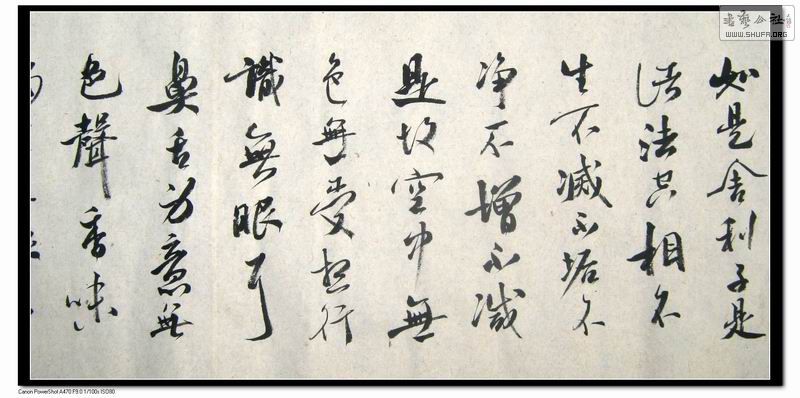 書藝公社
WWW.SHUFA.ORG
如是舍利子是
諸法空相不
生不滅不垢不
净不增不減
是故空中無
色無受想行
識無眼耳
鼻舌身意無
色聲香味
Canon PowerShot A470 F9.0 1/100s ISO80